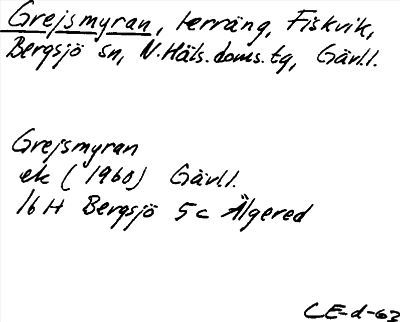 Grejsmyran, terräng, Fiskvik,
Bergsjö sn, N.Häls.doms.tg, Gävl.l.
Grejsmyran
ek (1960) Gävl.l.
16 H Bergsjö 5c Älgered
CE-d-63